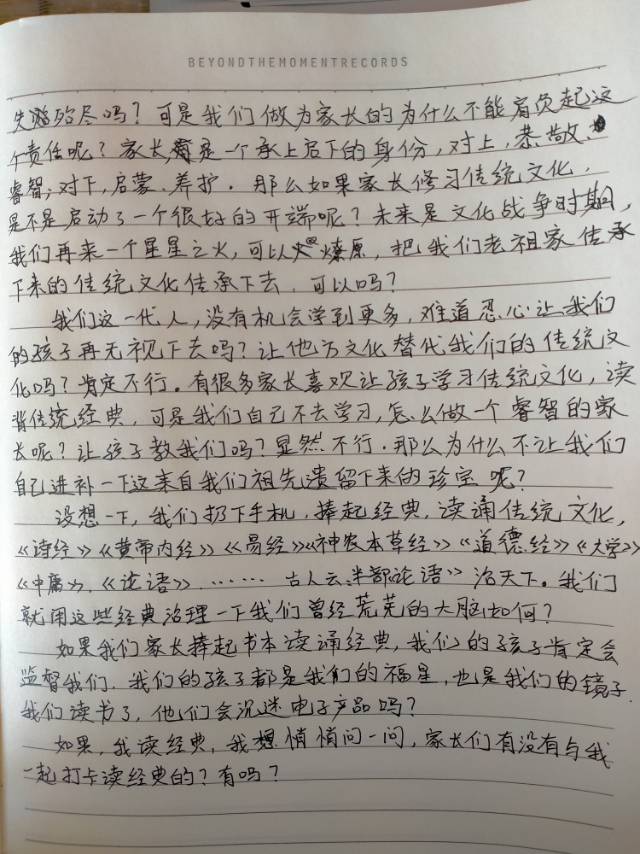 BEYONDTHEMOMENTRECORDS
失殆尽吗？可是我们做为家长的为什么不能肩负起这
个责任呢？家长是一个承上启下的身份，对上，恭敬、
睿智；对下，启蒙、养护。那么如果家长修习传统文化，
是不是启动了一个很好的开端呢？未来是文化战争时期，
我们再来一个星星之火，可以燎原，把我们老祖家传承
下来的传统文化传承下去，可以吗？
我们这一代人，没有机会学到更多，难道忍心让我们
的孩子再无视下去吗？让他方文化替代我们的传统文
化吗？肯定不行。有很多家长喜欢让孩子学习传统文化，读
背传统经典，可是我们自己不去学习，怎么做一个睿智的家
长呢？让孩子教我们吗？显然不行。那么为什么不让我们
自己进补一下这来自我们祖先遗留下来的珍宝呢？
设想一下，我们扔下手机，捧起经典，读诵传统文化，
《诗经》《黄帝内经》《易经》《神农本草经》《道德经》《大学》
《中庸》、《论语》…… 古人云，半部论语”治天下。我们
就用这些经典治理一下我们曾经荒芜的大脑如何？
如果我们家长捧起书本读诵经典，我们的孩子肯定会
监督我们，我们的孩子都是我们的福星，也是我们的镜子，
我们读书了，他们会沉迷电子产品吗？
如果，我读经典，我想悄悄问一问，家长们有没有与我
一起打卡读经典的？有吗？